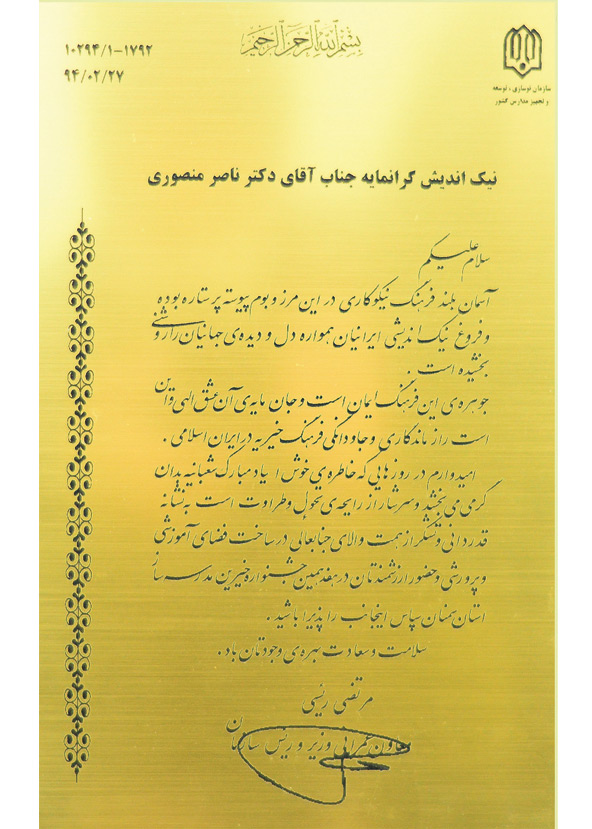 بسم الله الرحمن الرحیم
۱۰۲۹۴/۱-۱۷۹۲
۹۴/۰۲/۲۷
سازمان نوسازی ، توسعه
و تجهیز مدارس کشور
نیک اندیش گرانمایه جناب آقای دکتر ناصر منصوری
سلام علیکم
آسمان بلند فرهنگ نیکوکاری در این مرز و بوم پیوسته پر ستاره بوده
و فروغ نیک اندیشی ایرانیان همواره دل و دیده‌ی جهانیان را روشنی
بخشیده است .
جوهره‌ی این فرهنگ ایمان است و جان مایه‌ی آن عشق الهی و این
است راز ماندگاری و جاودانگی فرهنگ خیریه در ایران اسلامی .
امیدوارم در روزهایی که خاطره‌ی خوش اعیاد مبارک شعبانیه بدان
گرمی می بخشد و سرشار از رایحه‌ی تحول و طراوت است به نشانه
قدردانی و تشکر از همت والای جنابعالی در ساخت فضای آموزشی
و پرورشی و حضور ارزشمندتان در هفدهمین جشنواره خیرین مدرسه ساز
استان سمنان سپاس اینجانب را پذیرا باشید .
سلامت و سعادت بهره‌ی وجودتان باد .
مرتضی رئیسی
معاون عمرانی وزیر و رئیس سازمان